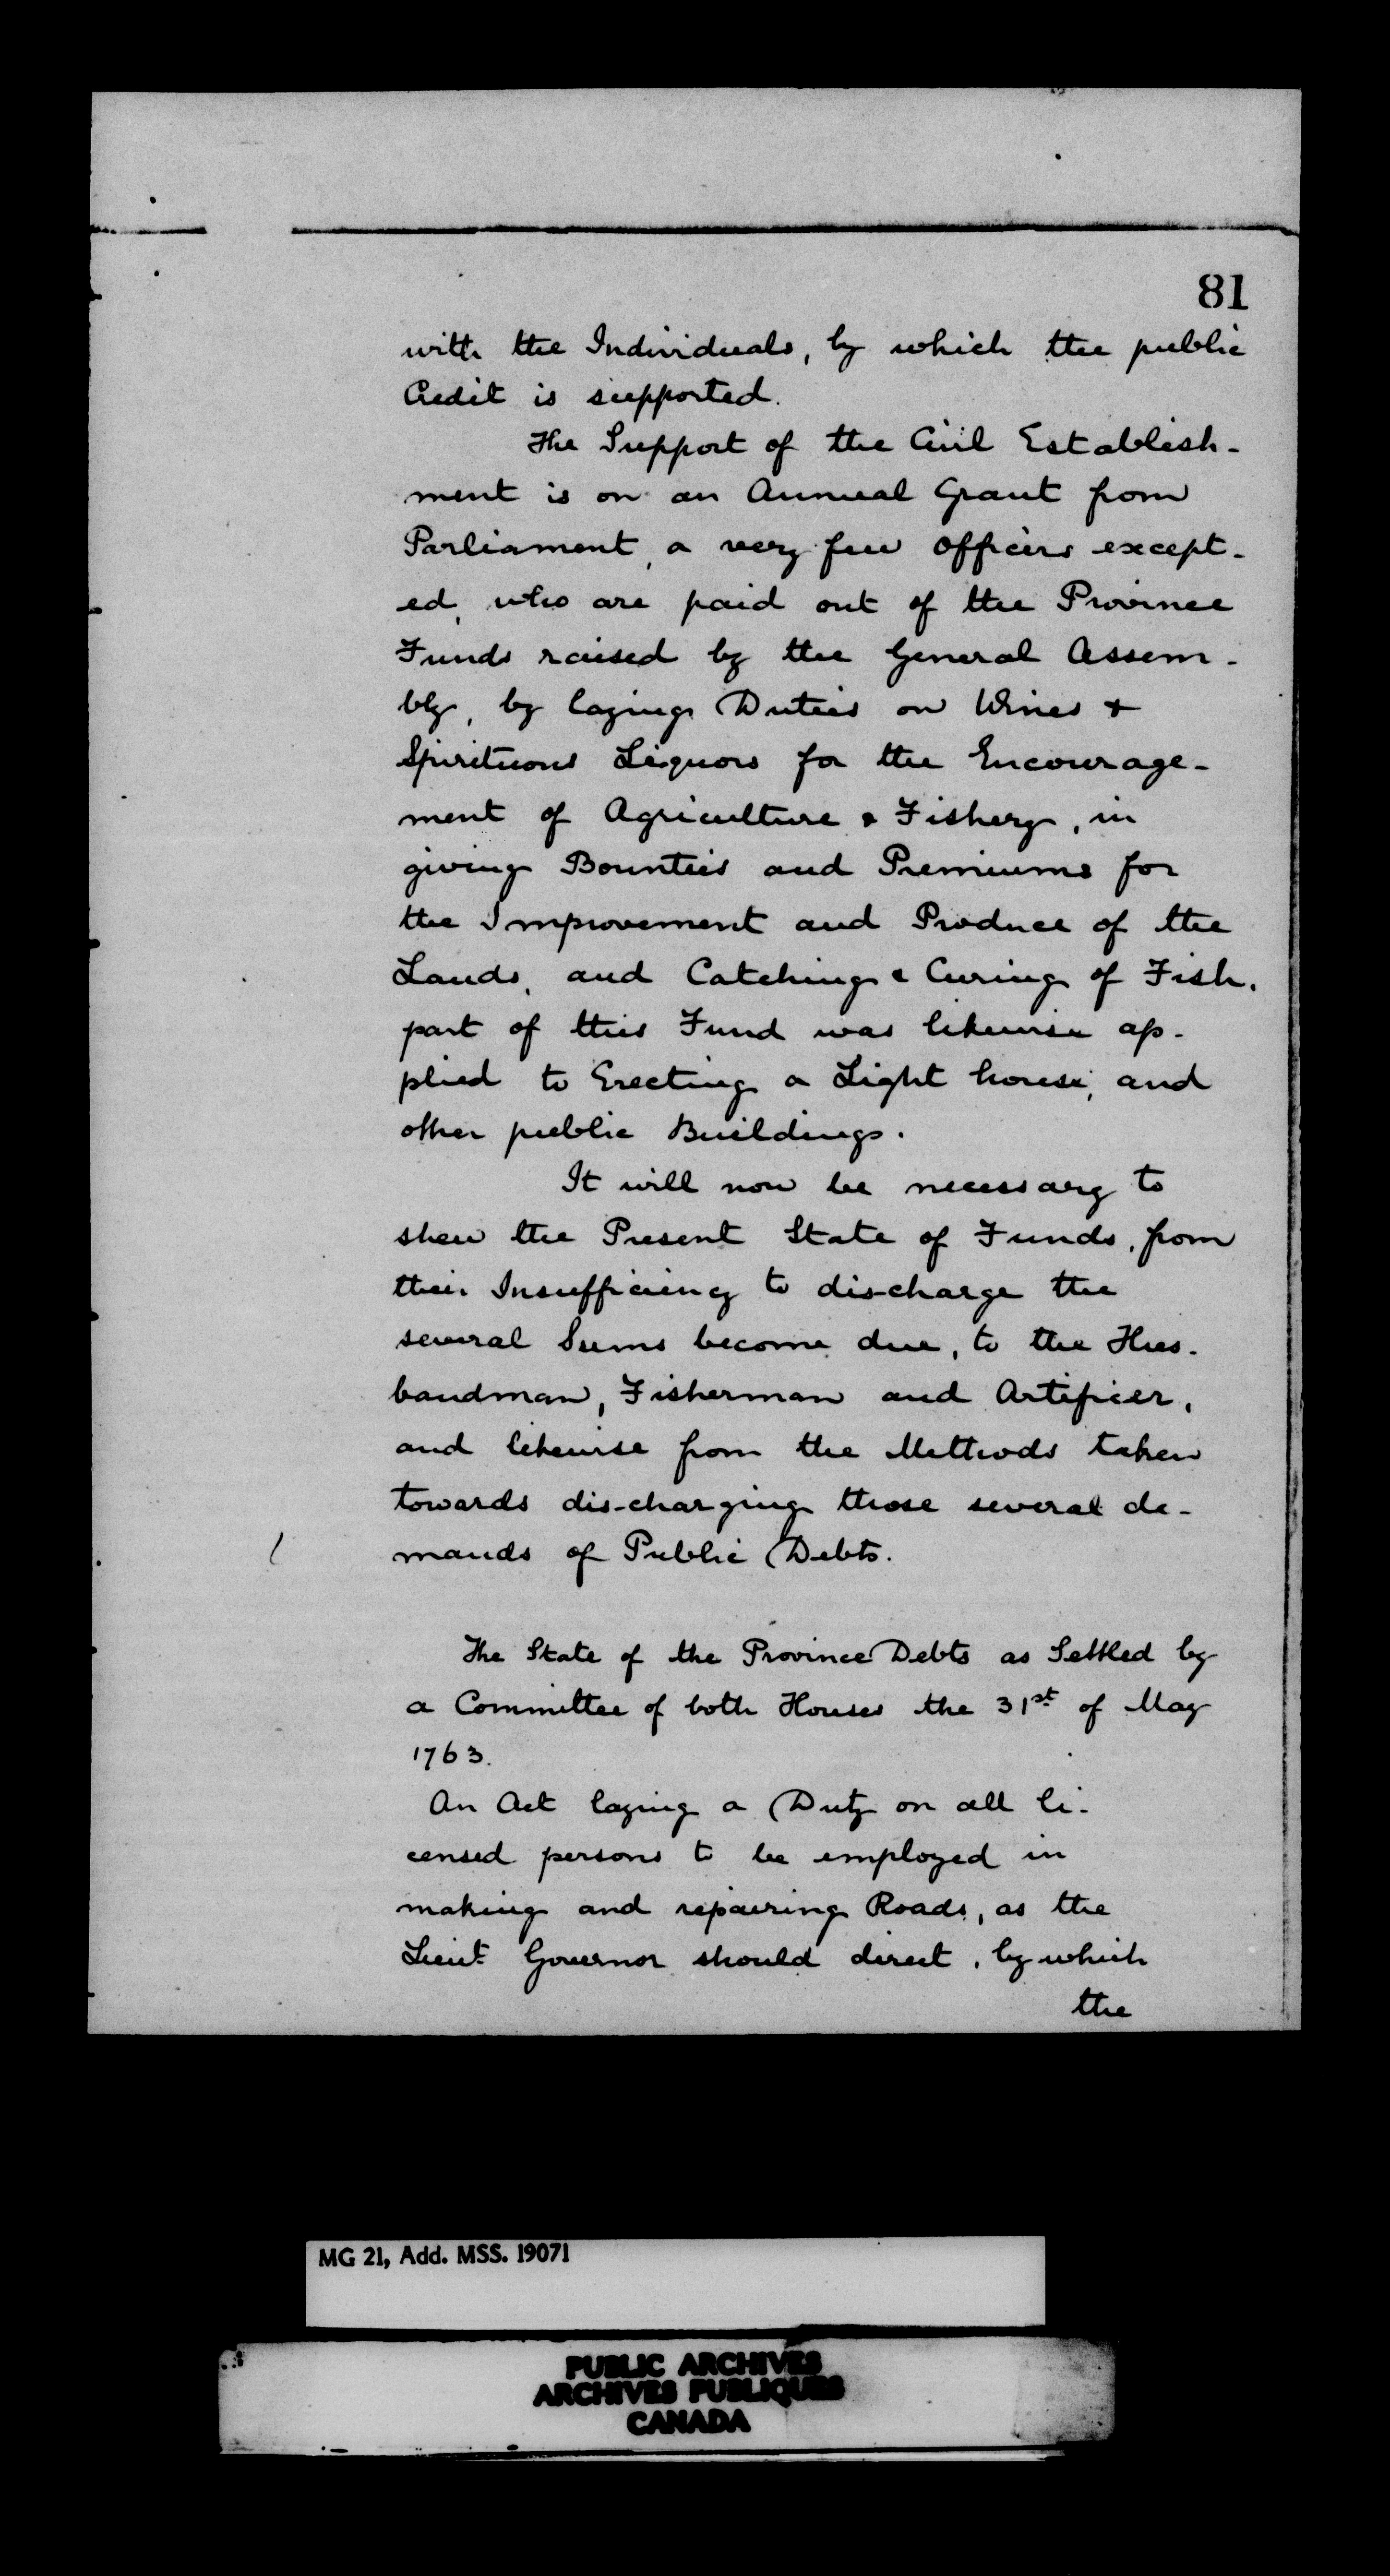 81
with the Individuals, by which the public
Credit is supported.
The Support of the Civil Establish-
ment is on an Annual Grant from
Parliament, a very few Officers except-
ed, who are paid out of the Province
Funds raised by the General Assem-
bly, by laying Duties on Wines &
Spirituous Liquors for the Encourage-
ment of Agriculture & Fishery, in
giving Bounties and Premiums for
the Improvement and Produce of the
Lands, and Catching & Curing of Fish.
part of this Fund was likewise ap-
plied to Erecting a Light house, and
other public Buildings.
It will now be necessary to
shew the Present State of Funds, from
their Insufficiency to dis-charge the
several Sums become due, to the Hus-
bandman, Fisherman and Artificer,
and likewise from the Methods taken
towards dis-charging those several de-
mands of Public Debts.
The State of the Province Debts as Settled by
a Committee of both Houses the 31st of May
1763.
An Act laying a Duty on all li-
censed persons to be employed in
making and repairing Roads, as the
Lieut. Governor should direct, by which
the
MG 21, Add. MSS. 19071
PUBLIC ARCHIVES
ARCHIVES PUBLIQUES
CANADA